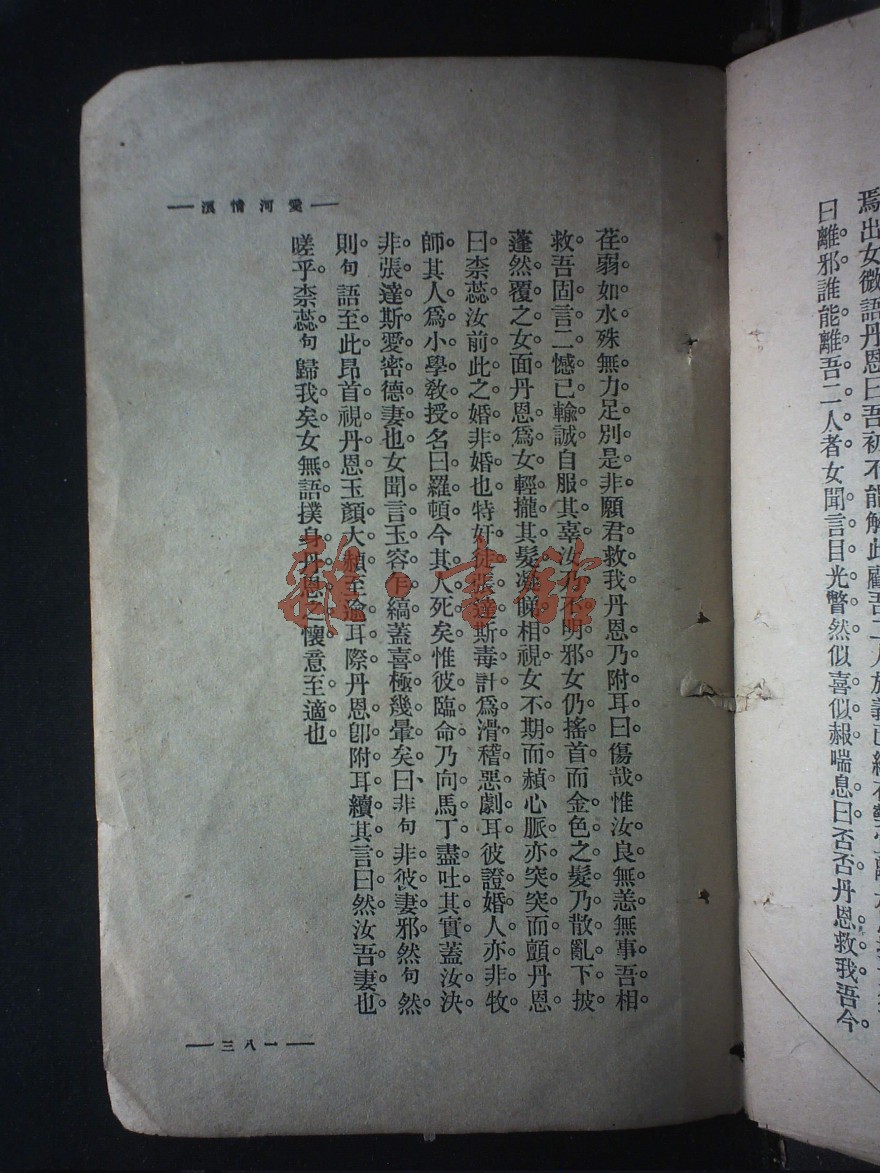 曰離邪誰能離吾二人者女聞言目光瞥然似喜似赧喘息曰否否丹恩救我吾今
愛河情
荏弱如水殊無力足別是非願君救我丹恩乃附耳曰傷哉惟汝良無恙無事吾相
救吾固言二憾已輸誠自服其辜汝乃不明邪女仍搖首而金色之髮乃散亂下披
蓬然覆之女面丹恩爲女輕攏其髮凝睇相視女不期而赬心脈亦突突而顫丹恩
曰柰蕊汝前此之婚非婚也特奸徒張達斯毒計爲滑稽惡劇耳彼證婚人亦非牧
師其人爲小學敎授名曰羅頓今其人死矣惟彼臨命乃向馬丁盡吐其實蓋汝決
非張達斯愛密德妻也女聞言玉容乍縞蓋喜極幾暈矣曰非句非彼妻邪然句然
則句語至此昂首視丹恩玉顏大赬至逾耳際丹恩卽附耳續其言曰然汝吾妻也
嗟乎柰蕊句歸我矣女無語撲身丹恩之懷意至適也
一八三
雜·書館